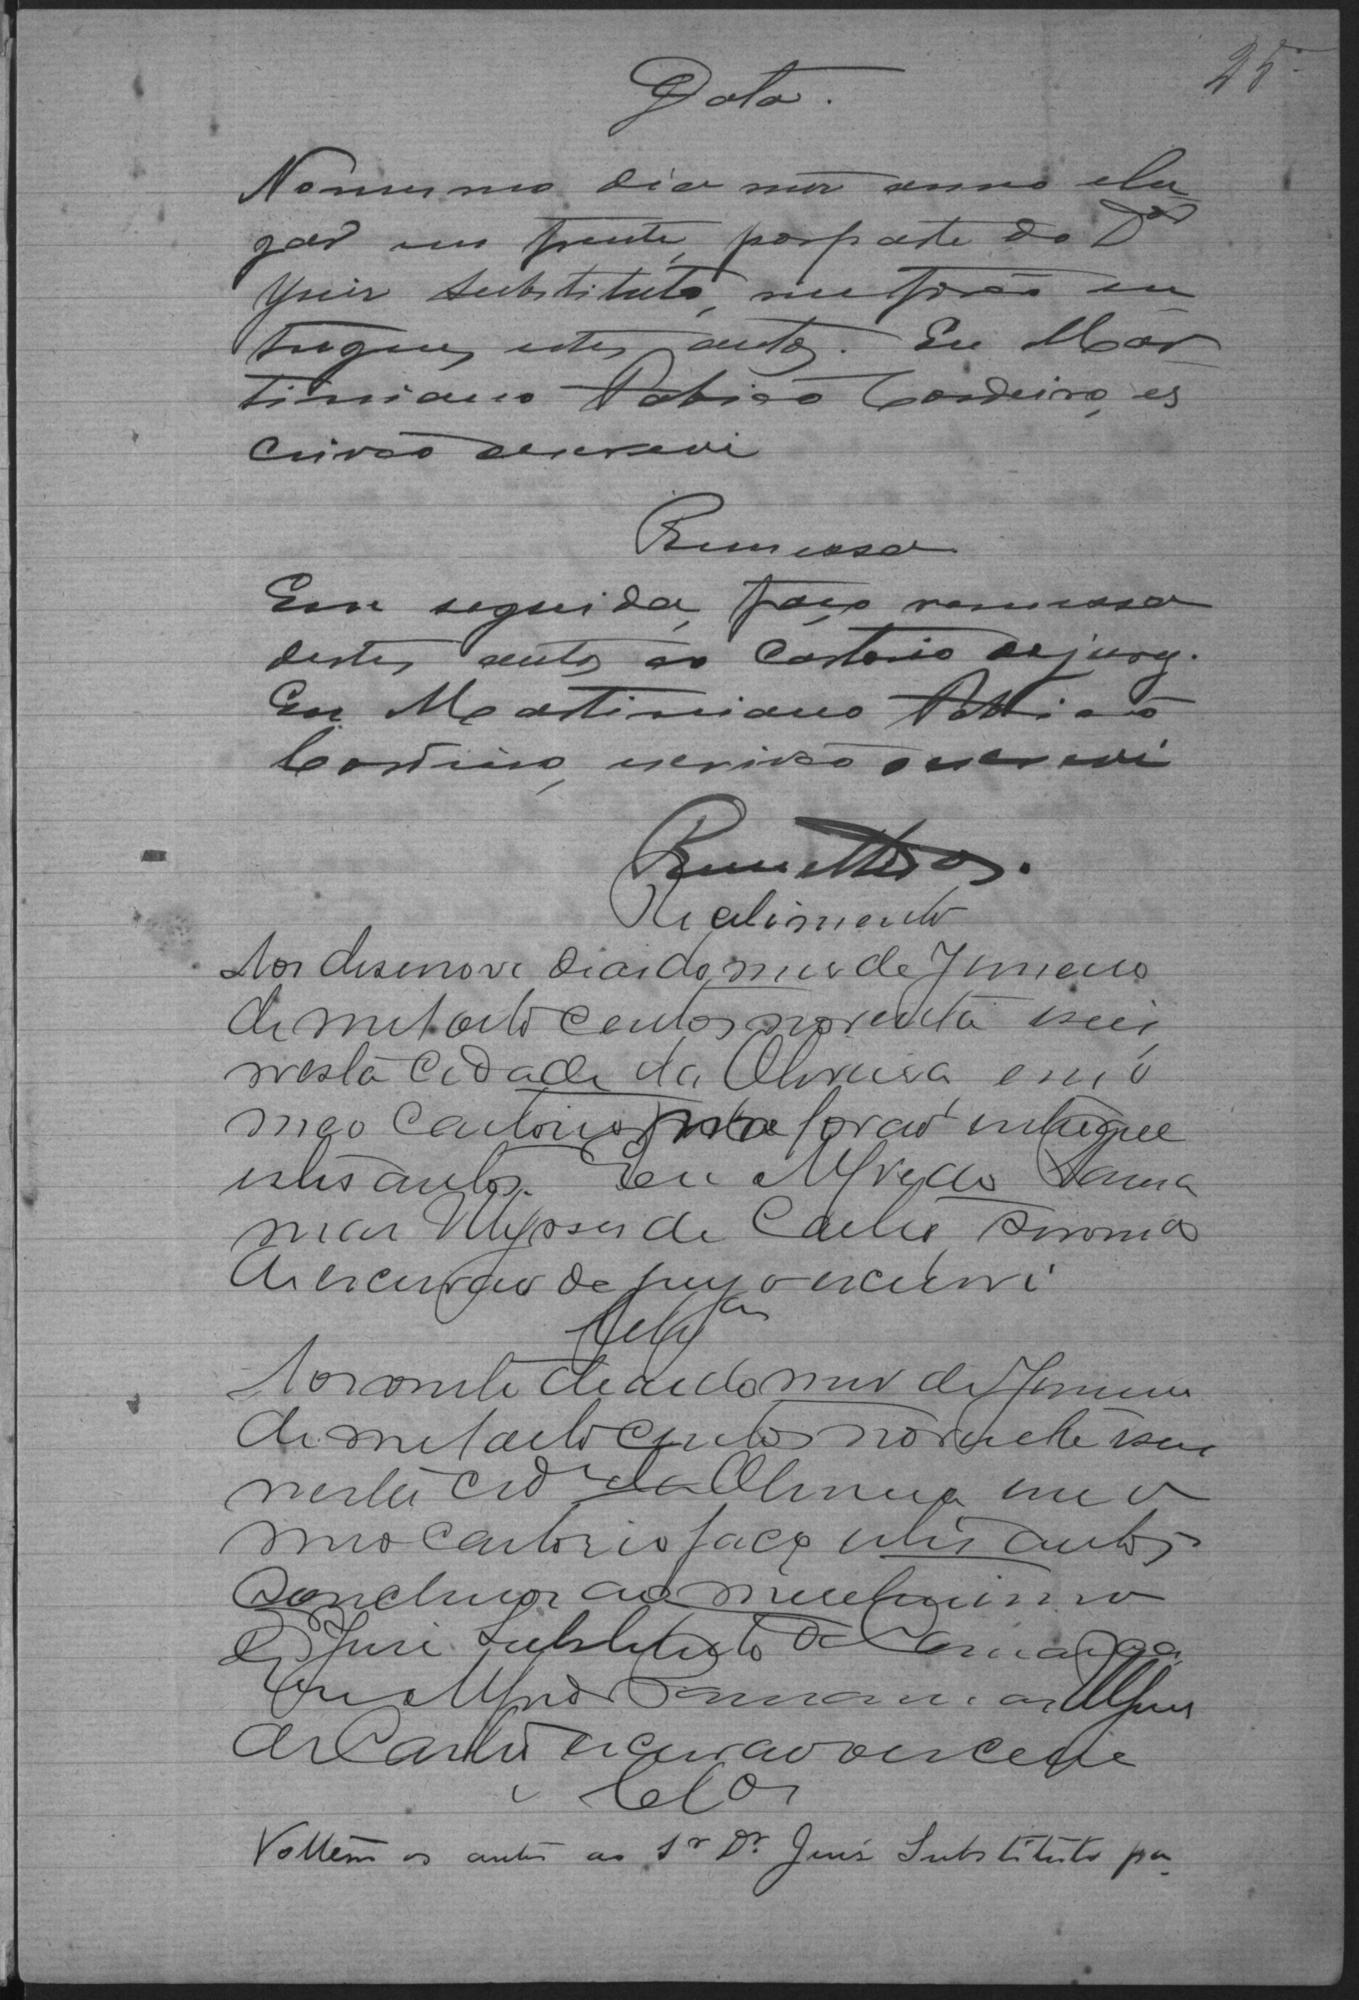 25
Data.
No mesmo dia mez anno e lu
gar em frente, por parte do Dor
Juiz Substituto, me forão en
tregues estes autos. Eu Mar
tiniano Fabião Cordeiro, es
crivão o escrevi
Remessa
Em seguida, faço remessa
destes autos ao Cartorio do jury.
Eu Martiniano Fabião
Cordeiro, escrivão o escrevi
Remettidos.
Recebimento
Aos desenove dias do mes de Janeiro
de mil oito centos noventa e seis
nesta cidade da Oliveira em o
meo cartorio forão entregue
estes autos. Eu Alfredo
Ulysses de Castro
de escrivão do jury o escrevi
Clsam
Aos vinte dias do mes de Janeiro
de mil oito centos noventa e seis
nesta cide da Oliveira em o
meo cartorio faço estes autos
conclusos ao meretissimo
Dr Juiz Substituto da Comarca
Eu Alfredo Ulysses
de Castro escrivão o escrevi
Clos
Voltem os autos ao Sr Dr Juiz Substituto pa